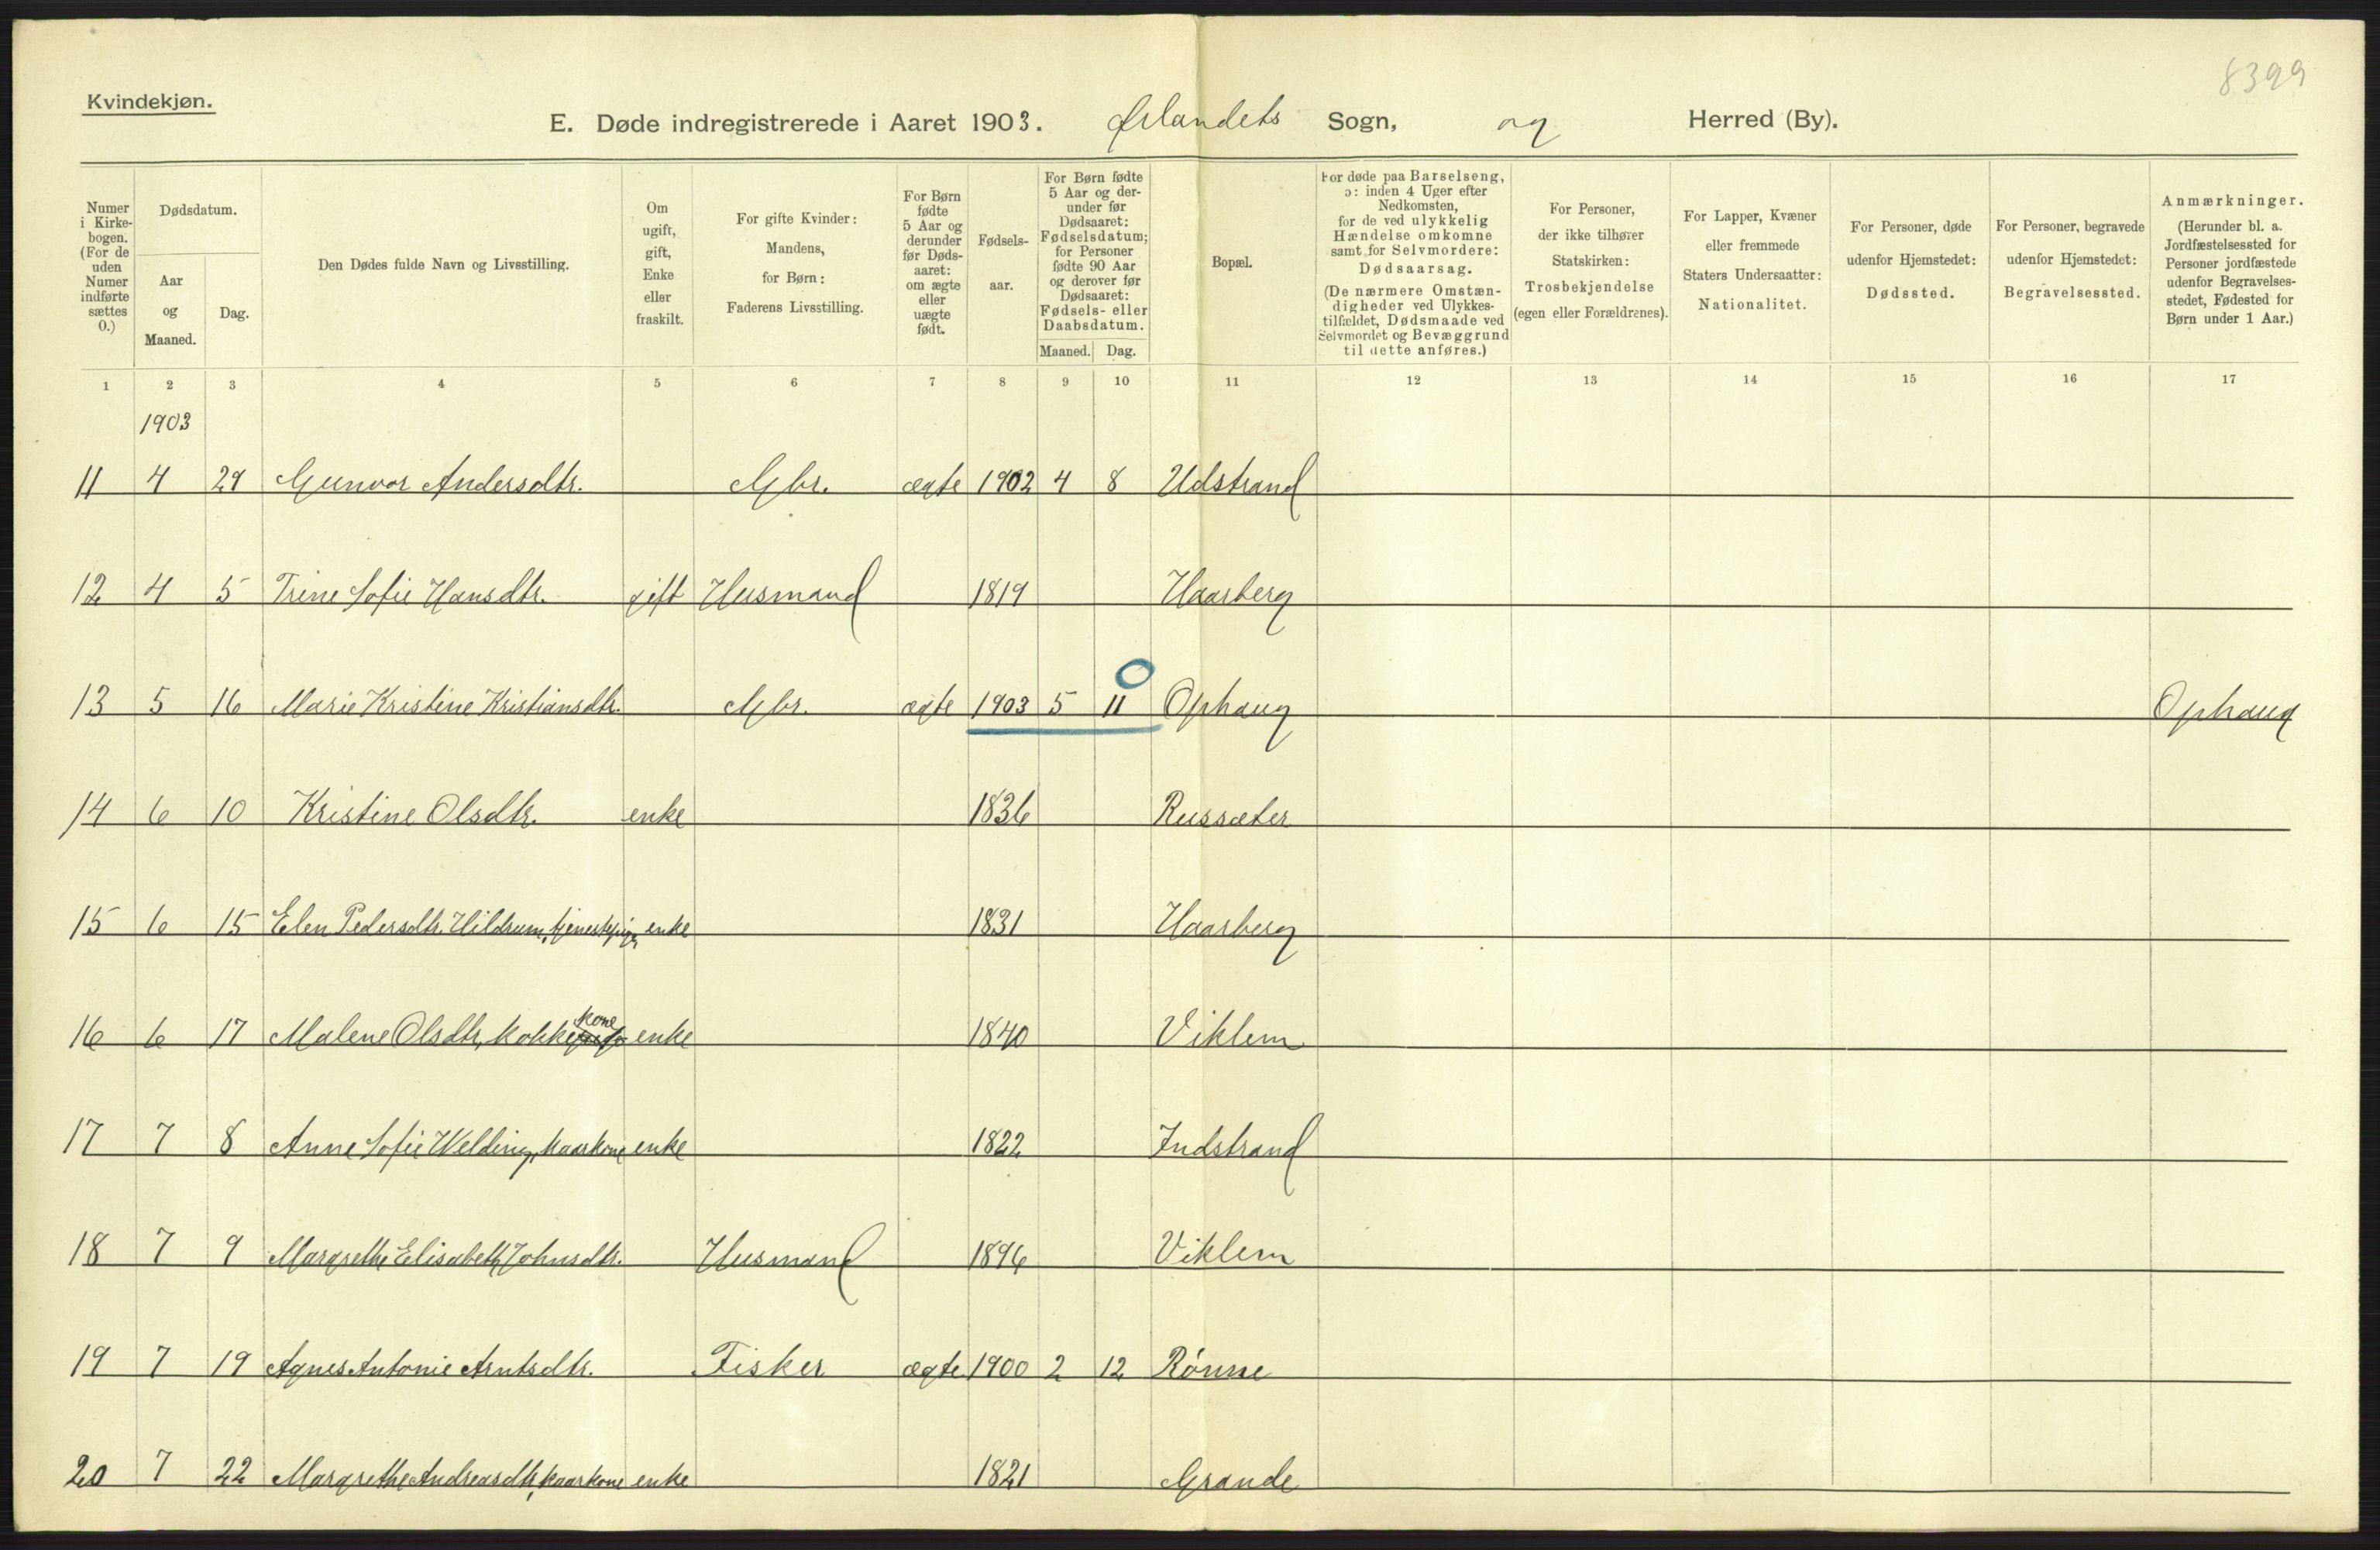 8399
Kvindekjøn.
E. Døde indregistrerede i Aaret 1903. Ørlandets Sogn, og Herred (By).
Numer i Kirkebogen. (For de uden Numer indførte sættes 0.)
Dødsdatum.
Aar og Maaned.
Dag.
Den Dødes fulde Navn og Livsstilling.
Om ugift, gift, Enke eller fraskilt.
For gifte Kvinder: Mandens, for Børn: Faderens Livsstilling.
For Børn fødte 5 Aar og derunder før Dødsaaret: om ægte eller uægte født.
Fødselsaar.
For Børn fødte 5 Aar og derunder før Dødsaaret: Fødselsdatum; for Personer fødte 90 Aar og derover før Dødsaaret: Fødsels- eller Daabsdatum.
Maaned. Dag.
Bopæl.
For døde paa Barselseng, ɔ: inden 4 Uger efter Nedkomsten, for de ved ulykkelig Hændelse omkomne samt for Selvmordere: Dødsaarsag. (De nærmere Omstændigheder ved Ulykkestilfældet, Dødsmaade ved Selvmordet og Bevæggrund til dette anføres.)
For Personer, der ikke tilhører Statskirken: Trosbekjendelse (egen eller Forældrenes).
For Lapper, Kvæner eller fremmede Staters Undersaatter: Nationalitet.
For Personer, døde udenfor Hjemstedet: Dødssted.
For Personer, begravede udenfor Hjemstedet: Begravelsessted.
Anmærkninger. (Herunder bl. a. Jordfæstelsessted for Personer jordfæstede udenfor Begravelsesstedet, Fødested for Børn under 1 Aar.)
1 2 3 4 5 6 7 8 9 10 11 12 13 14 15 16 17
1903
11 4 29 Gunvor Andersdtr. Gbr. ægte 1902 4 8 Udstrand
12 4 5 Trine Sofie Hansdtr. gift Husmand 1819 Haarberg
0
13 5 16 Marie Kristine Kristiansdtr. Gbr. ægte 1903 5 11 Ophaug Ophaug
14 6 10 Kristine Olsdtr. enke 1836 Russæter
15 6 15 Elen Pedersdtr. Hildrum, tjenestepige, enke 1831 Haarberg
kone
16 6 17 Malene Olsdtr, kokke enke 1840 Viklem
17 7 8 Anne Sofie Welding, kaarkone enke 1822 Indstrand
18 7 9 Margrethe Elisabeth Johnsdtr. Husmand 1896 Viklem
19 7 19 Agnes Antonie Arntsdtr. Fisker ægte 1900 2 12 Rönne
20 7 22 Margrethe Andreasdtr, kaarkone enke 1821 Grande